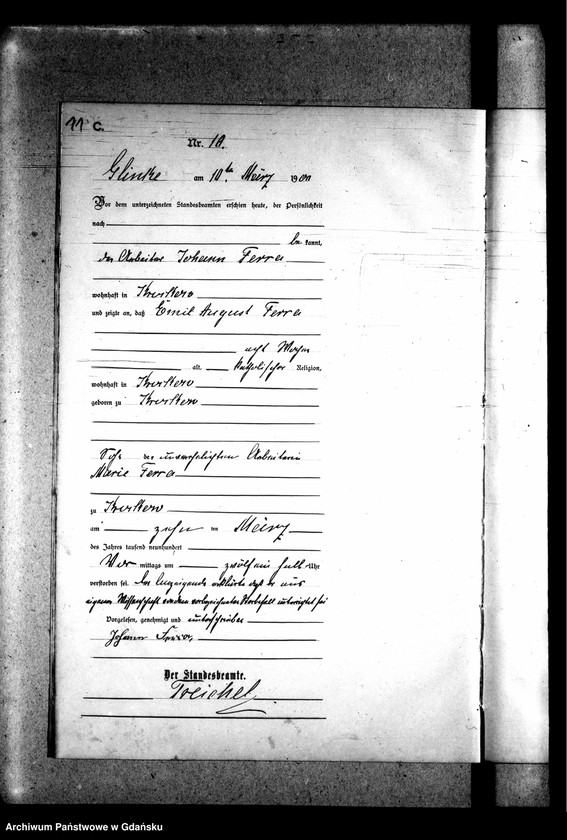 11 C.
Nr. 10.
Glinke am 10ten März 1900
Vor dem unterzeichneten Standesbeamten erschien heute, der Persönlichkeit
nach
bekannt,
der Arbeiter Johann Ferra
wohnhaft in
und zeigte an, daß Emil August Ferra
acht Wochen
alt, katholischer Religion,
wohnhaft in
geboren zu
Sohn der unverehelichten Arbeiterin
Marie Ferra
zu
am zehn ten März
des Jahres tausend neunhundert
Vor mittags um zwölf ein halb Uhr
verstorben sei. Der Anzeigende erklärte daß er aus
eigener Wissenschaft von dem vorbezeichneten Sterbefall unterrichtet sei
Vorgelesen, genehmigt und unterschrieben
Johann
Der Standesbeamte.
Treichel
Archiwum Państwowe w Gdańsku